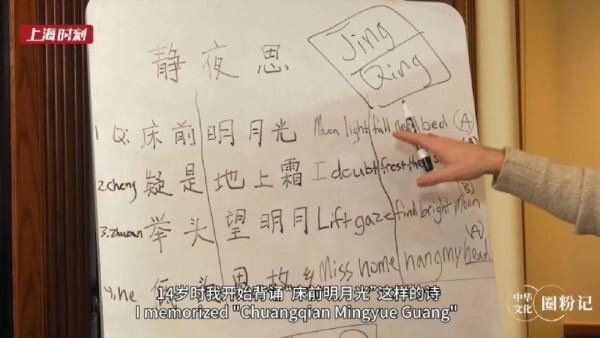 上海时刻
静夜思
Jing
Qing
1 Qi: 床前明月光 Moon light fall near bed (A)
2. cheng 疑是地上霜 I doubt frost
3. zhuan 举头望明月 Lift gaze find bright moon (B)
4. he 低头思故乡 Miss home hang my head (A)
14岁时我开始背诵“床前明月光”这样的诗
I memorized "Chuangqian Mingyue Guang"
中华文化
圈粉记